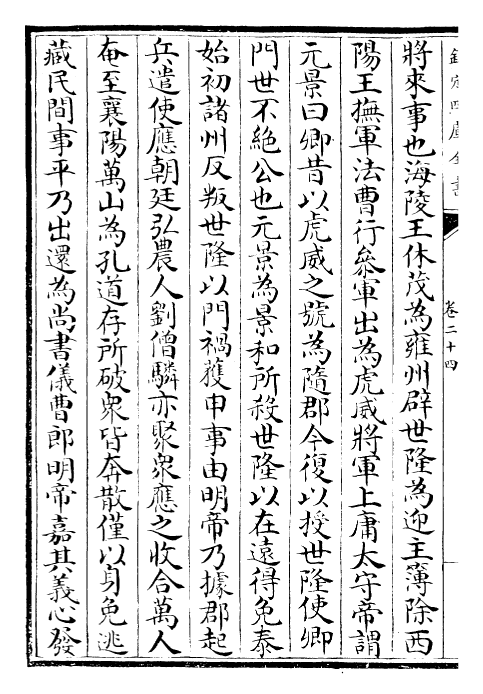 欽定四庫全書
卷二十四
將來事也海陵王休茂為雍州辟世隆為迎主簿除西
陽王撫軍法曹行參軍出為虎威將軍上庸太守帝謂
元景曰卿昔以虎威之號為隨郡今復以授世隆使卿
門世不絶公也元景為景和所殺世隆以在遠得免泰
始初諸州反叛世隆以門禍獲申事由明帝乃據郡起
兵遣使應朝廷弘農人劉僧驎亦聚衆應之收合萬人
奄至襄陽萬山為孔道存所破衆皆奔散僅以身免逃
藏民間事平乃出還為尚書儀曹郎明帝嘉其義心發